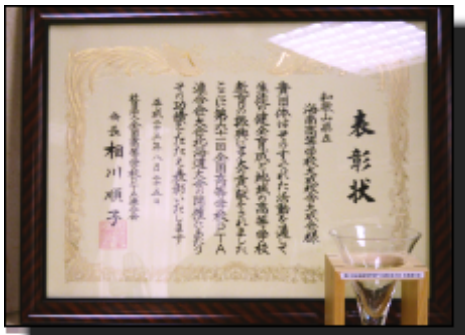 表彰状
和歌山県立
海南高等学校大成校舎育成会様
貴団体はそのすぐれた活動を通して
生徒の健全育成と地域の高等学校
教育の振興に多大な貢献をされました
ここに第六十一回全国高等学校PTA
連合会大会北海道大会の開催にあたり
その功績をたたえ表彰いたします
平成二十三年八月二十五日
社団法人全国高等学校PTA連合会
会長 相川順子